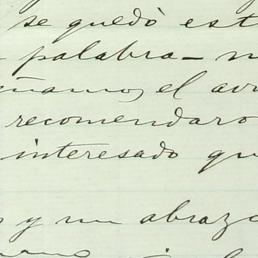 se quedò est
palabra - n
ñamo, el av
recomendaro
interesado qu
y un abrazo